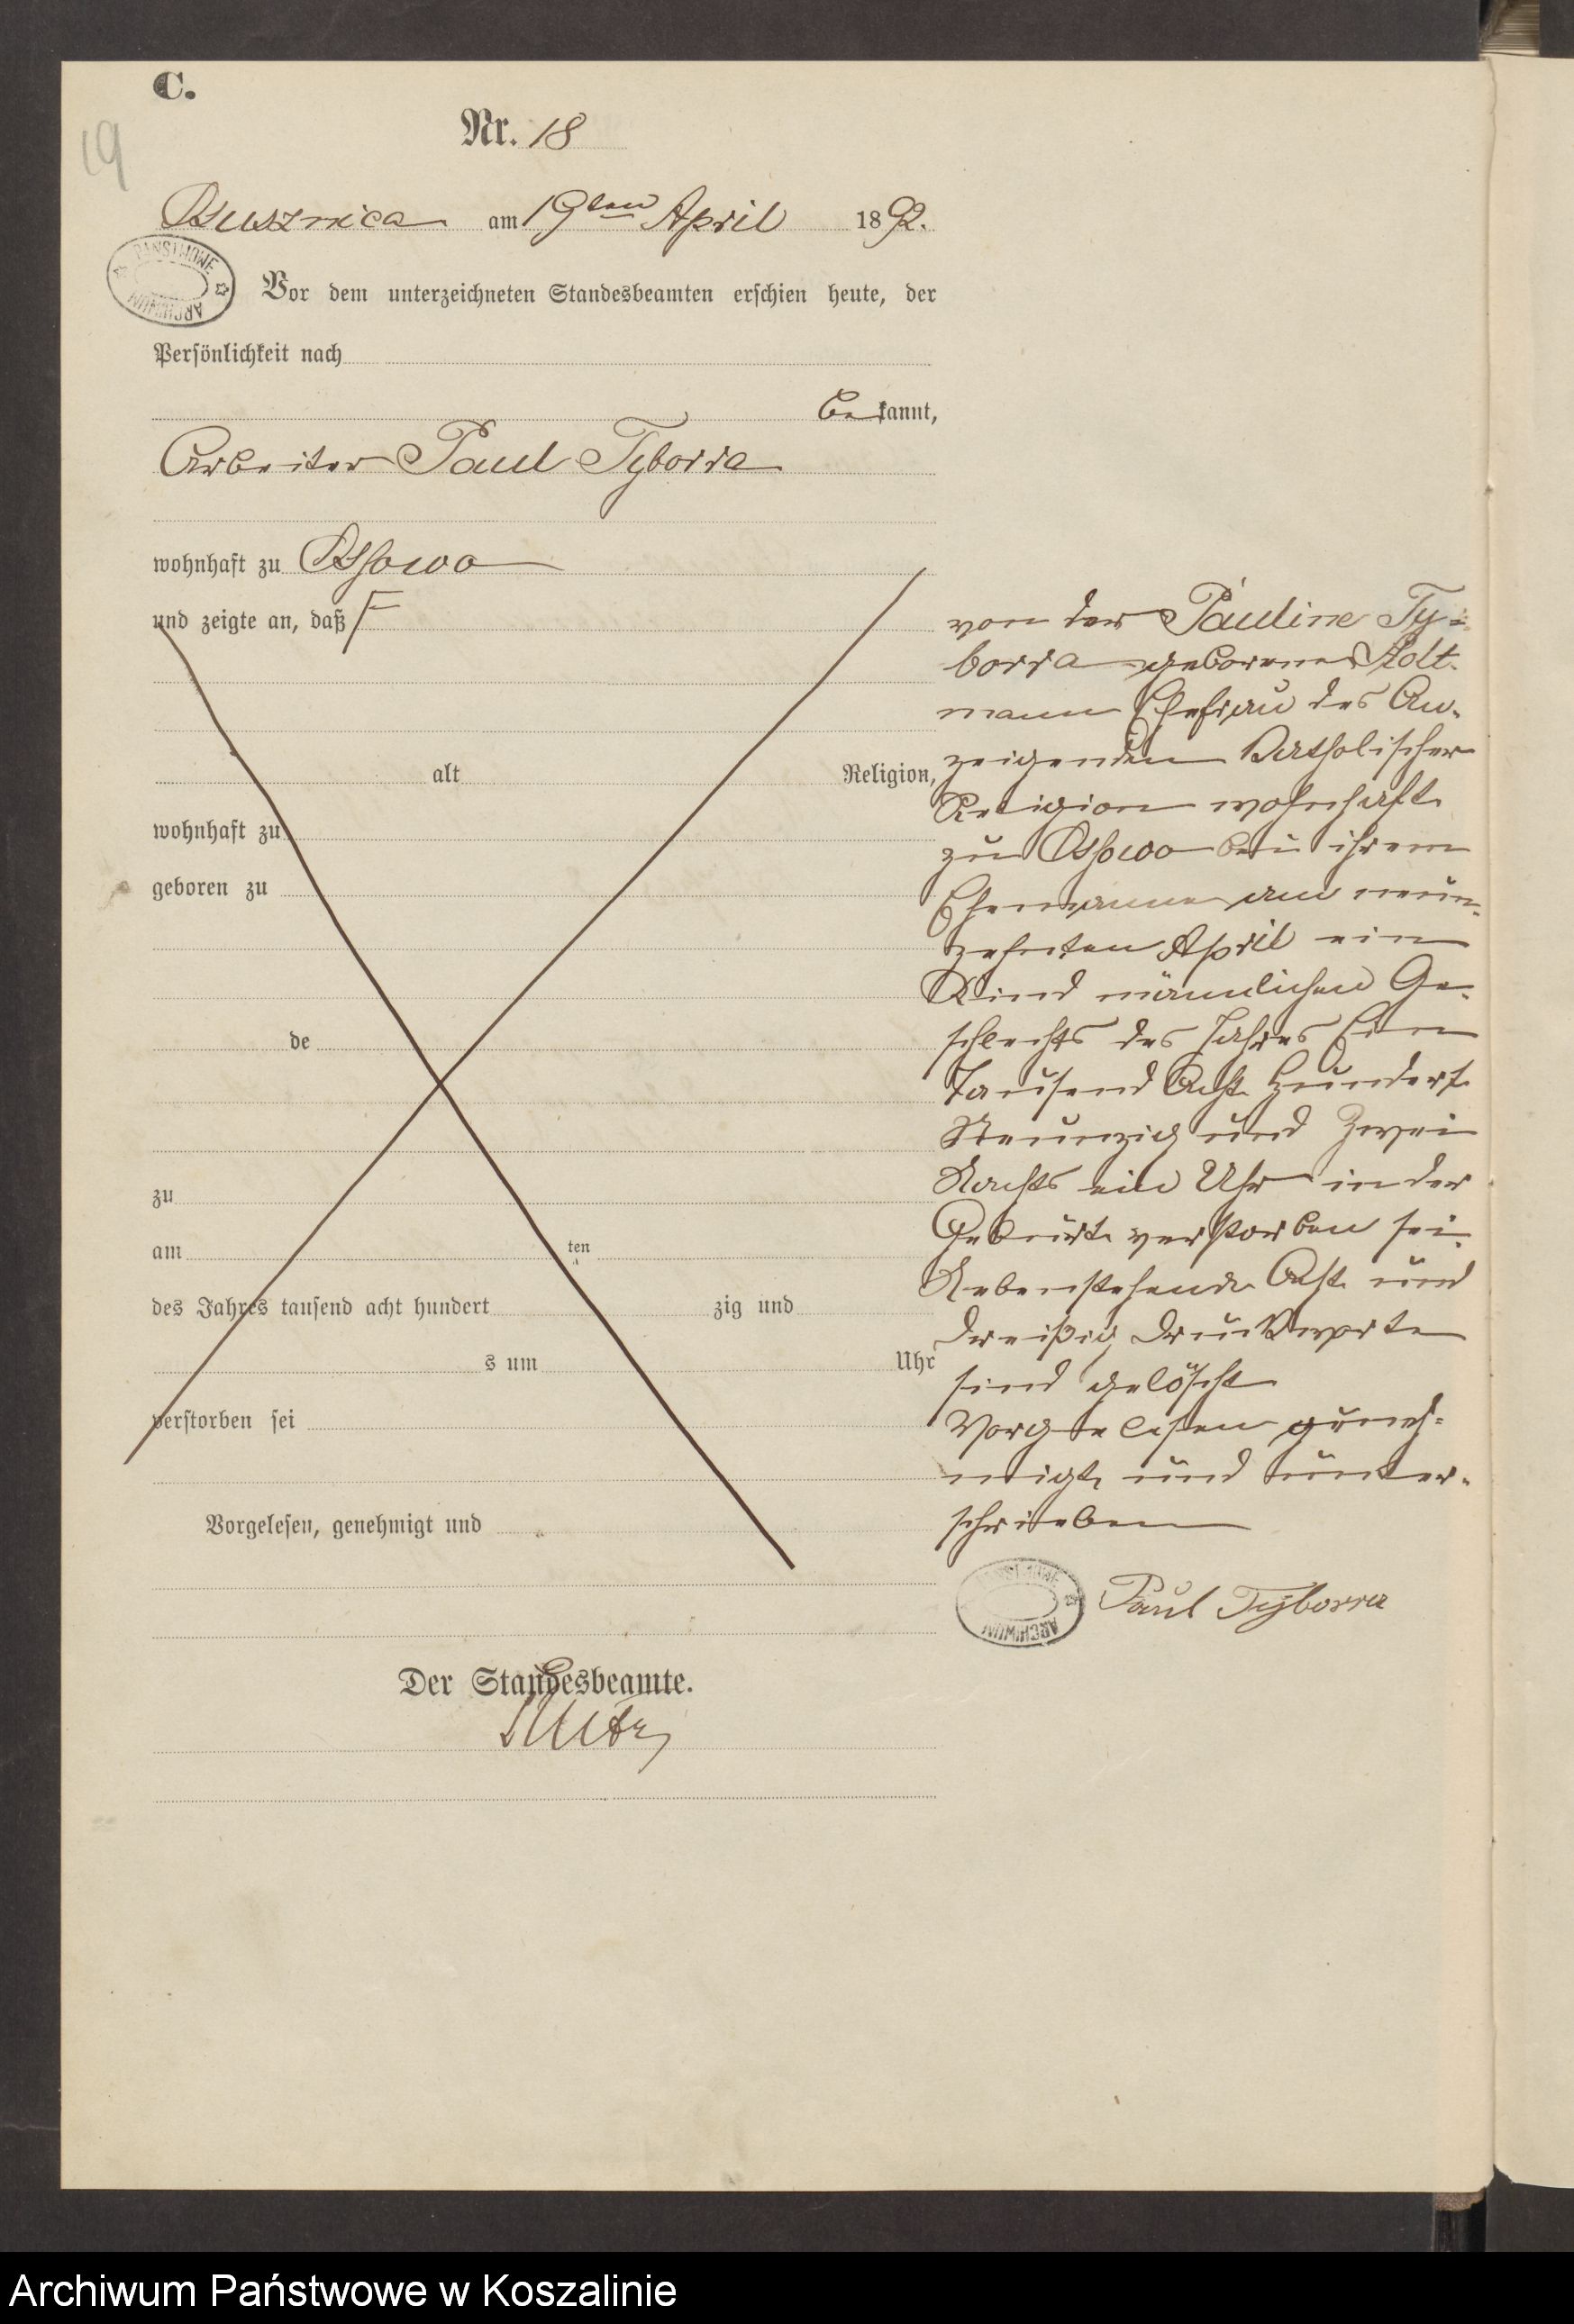 C.
19
Nr. 18
am 19ten April 1892.
PAŃSTWOWE ARCHIWUM
Vor dem unterzeichneten Standesbeamten erschien heute, der
Persönlichkeit nach
bekannt,
Arbeiter Paul Tyborra
wohnhaft zu Ossowo
und zeigte an, daß
alt Religion,
wohnhaft zu
geboren zu
de
zu
am ten
des Jahres tausend acht hundert zig und
s um Uhr
verstorben sei
Vorgelesen, genehmigt und
Der Standesbeamte.
von der Pauline Ty=
borra geborene
mann Ehefrau des An-
zeigenden Katholischer
Religion wohnhaft
zu Ossowo bei ihrem
Ehemanne am neun-
zehnten April ein
Kind männlichen Ge-
schlechts des Jahres Ein
Tausend Acht Hundert
Neunzig und Zwei
Nachts ein Uhr in der
Geburt verstorben sei.
Nebenstehende Acht und
dreißig Druckworte
sind gelöscht
Vorgelesen geneh=
migt und unter-
schrieben
PAŃSTWOWE ARCHIWUM
Paul Tyborra
Archiwum Państwowe w Koszalinie